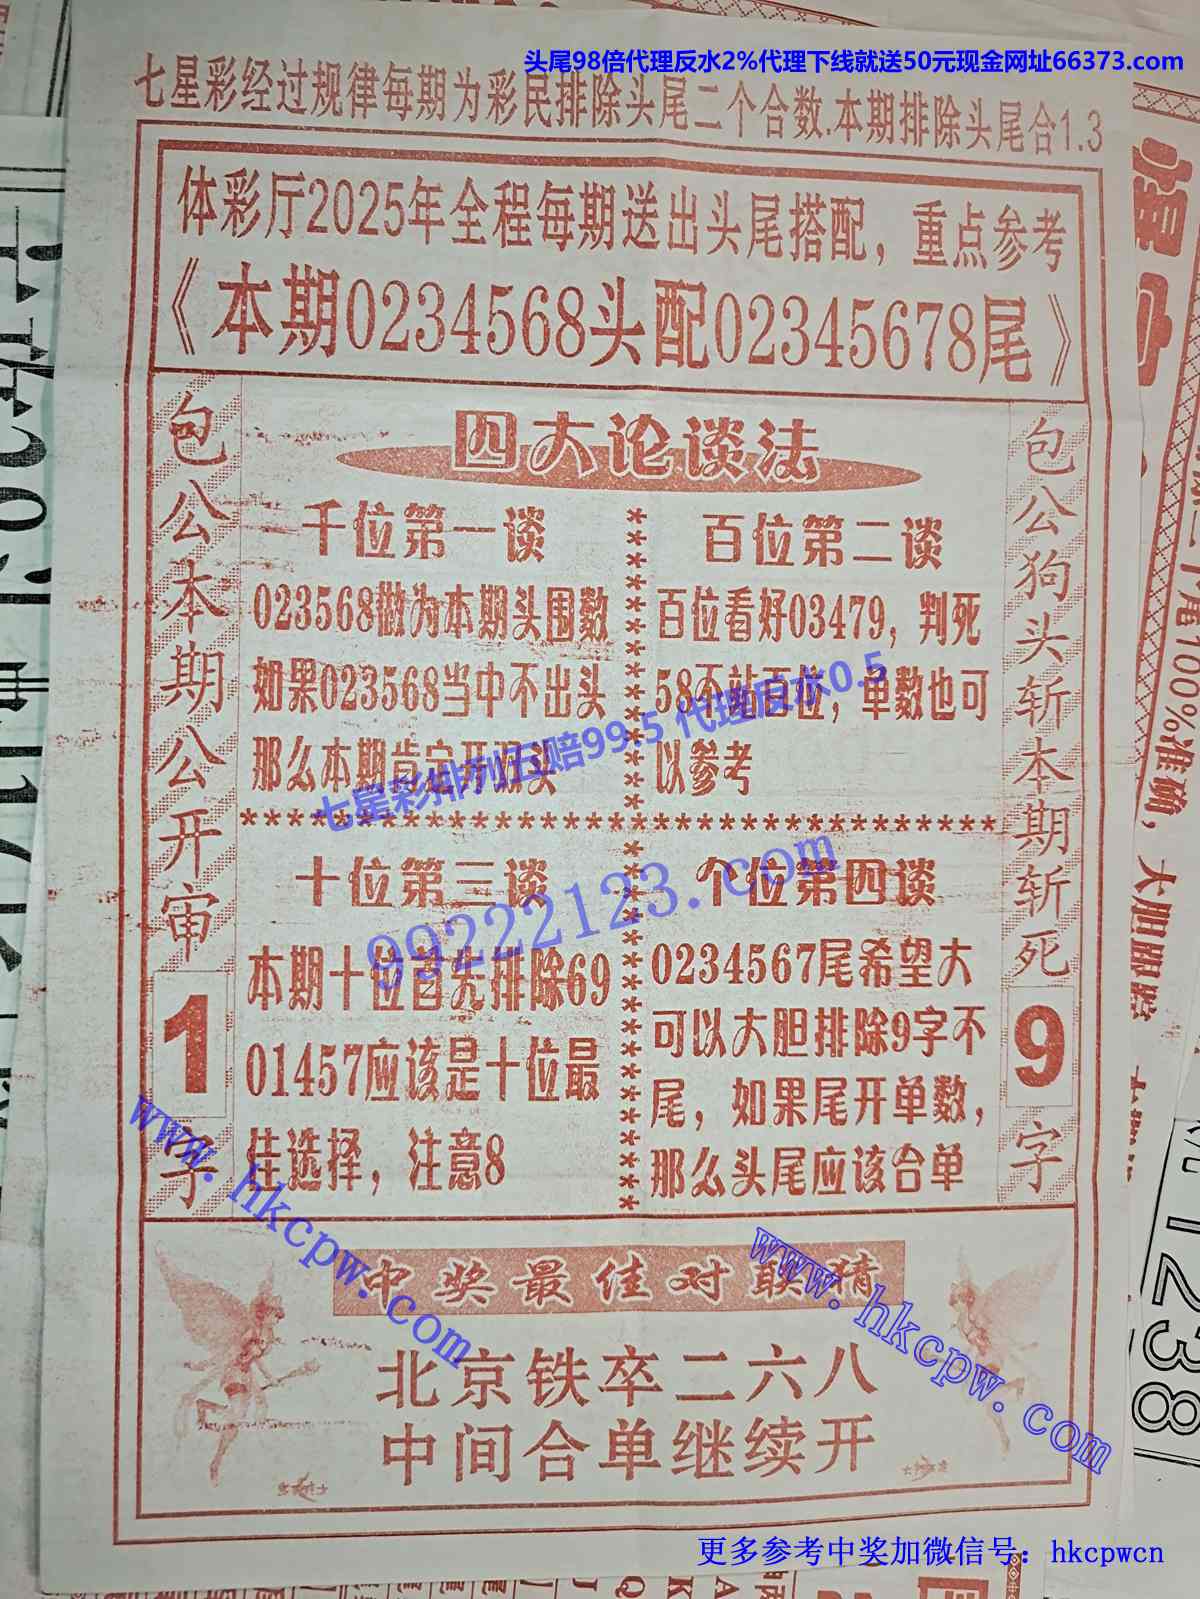 头尾98倍代理反水2%代理下线就送50元现金网址66373.com
七星彩经过规律每期为彩民排除头尾二个合数.本期排除头尾合1.3
体彩厅2025年全程每期送出头尾搭配，重点参考
《本期0234568头配02345678尾》
包公本期公开审1字
四大论谈法
千位第一谈
023568做为本期头围数
如果023568当中不出头
那么本期肯定开归头
百位第二谈
百位看好03479，判死
58不站百位，单数也可
以参考
七星彩排列五赔99.5 代理反水0.5
99222123.com
十位第三谈
本期十位首先排除69
01457应该是十位最
佳选择，注意8
个位第四谈
0234567尾希望大
可以大胆排除9字不
尾，如果尾开单数，
那么头尾应该合单
包公狗头斩本期斩死9字
中奖最佳对联猜
北京铁卒二六八
中间合单继续开
www.hkcpw.com
www.hkcpw.com
更多参考中奖加微信号：hkcpwcn
100%准确，大胆跟踪
1238